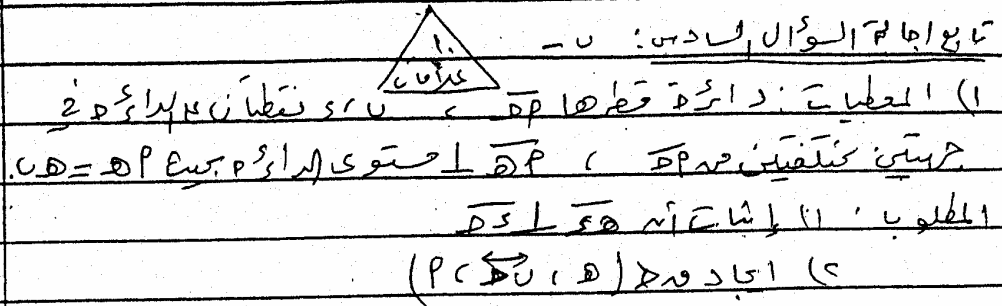 تابع اجابة السؤال السادس: ب-
١٠ علامات
١) المعطيات: دائرة قطرها أجـ ، ب، ء نقطتان على الدائرة في
جهتين مختلفتين من أجـ ، أهـ ⊥ مستوى الدائرة بحيث أهـ = هـ ب.
المطلوب: ١) إثبات أن هـء ⊥ ءجـ
٢) ايجاد قـ (هـ ، بجـ ، أ)